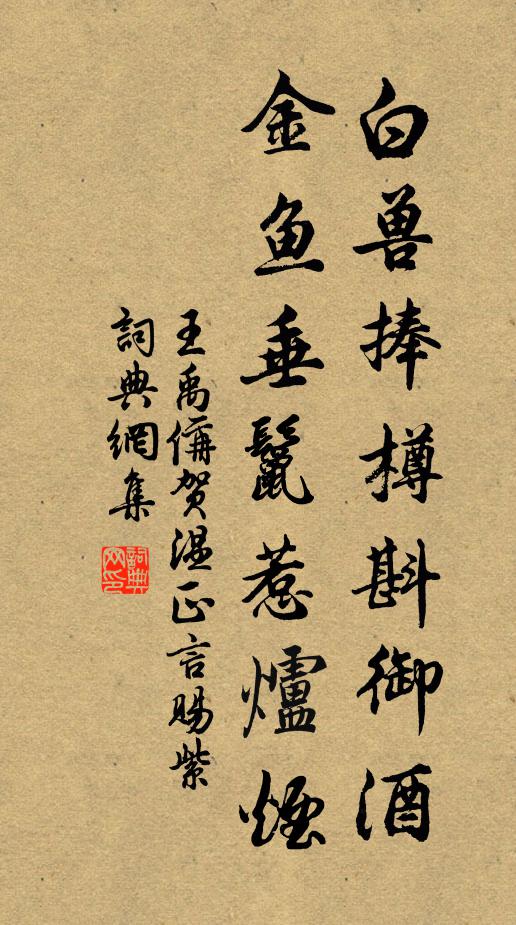 白兽捧樽斟御酒
金鱼垂鬣惹爐煙
王禹偁贺温正言赐紫
詞典網集
詞典网印